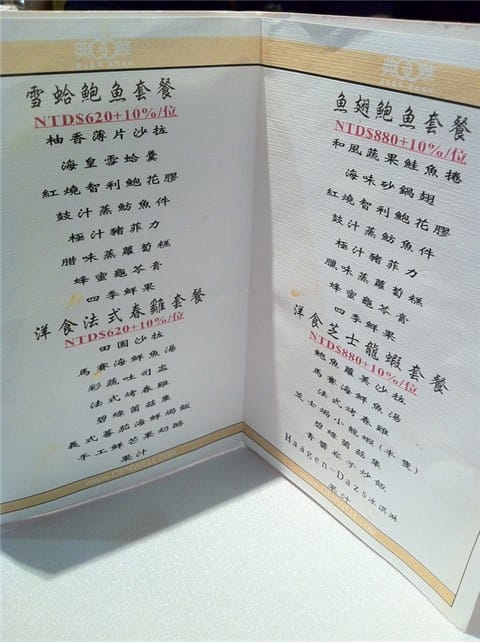 雪蛤鮑魚套餐
NTD$620+10%/位
柚香薄片沙拉
海皇雪蛤羹
紅燒智利鮑花膠
鼓汁蒸魴魚件
極汁豬菲力
腊味蒸蘿蔔糕
蜂蜜龜苓膏
四季鮮果
洋食法式春雞套餐
NTD$620+10%/位
田園沙拉
馬賽海鮮魚湯
彩蔬吐司盅
法式烤春雞
碧綠菌菇集
義式蕃茄海鮮焗飯
手工鮮芒果奶酪
果汁
www.DENWELL.com
魚翅鮑魚套餐
NTD$880+10%/位
和風蔬果鮭魚捲
海味砂鍋翅
紅燒智利鮑花膠
鼓汁蒸魴魚件
極汁豬菲力
臘味蒸蘿蔔糕
蜂蜜龜苓膏
四季鮮果
洋食芝士龍蝦套餐
NTD$880+10%/位
鮑魚蘿美沙拉
馬賽海鮮魚湯
法式烤春雞
芝士焗小龍蝦(半隻)
碧綠菌菇集
青醬松子炒飯
Haagen-Dazs冰淇淋
果汁